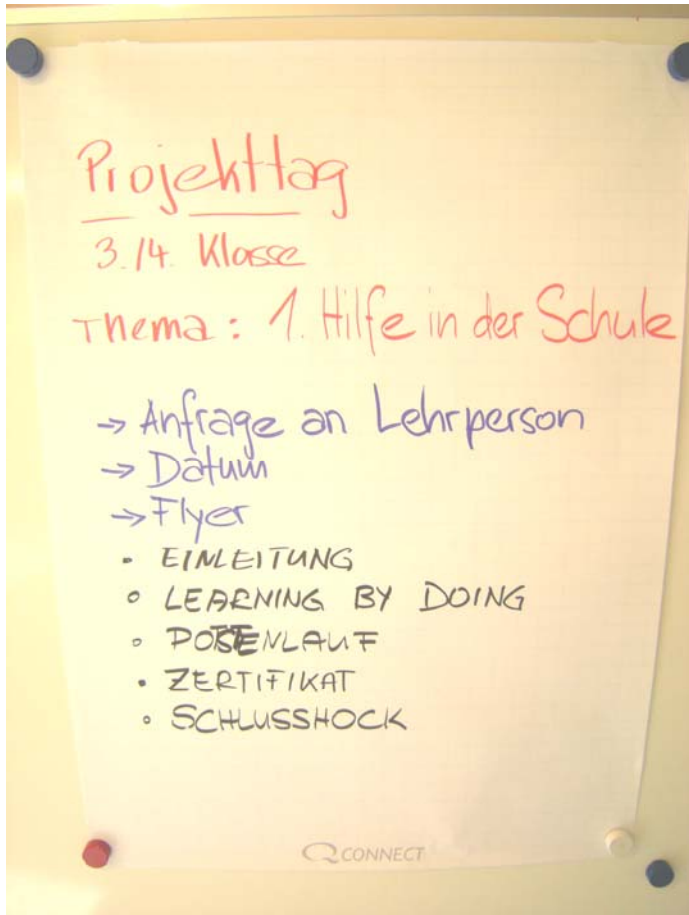 Projekttag
3./4. Klasse
Thema: 1. Hilfe in der Schule
→ Anfrage an Lehrperson
→ Datum
→ Flyer
• EINLEITUNG
• LEARNING BY DOING
• POSTENLAUF
• ZERTIFIKAT
• SCHLUSSHOCK
Q CONNECT